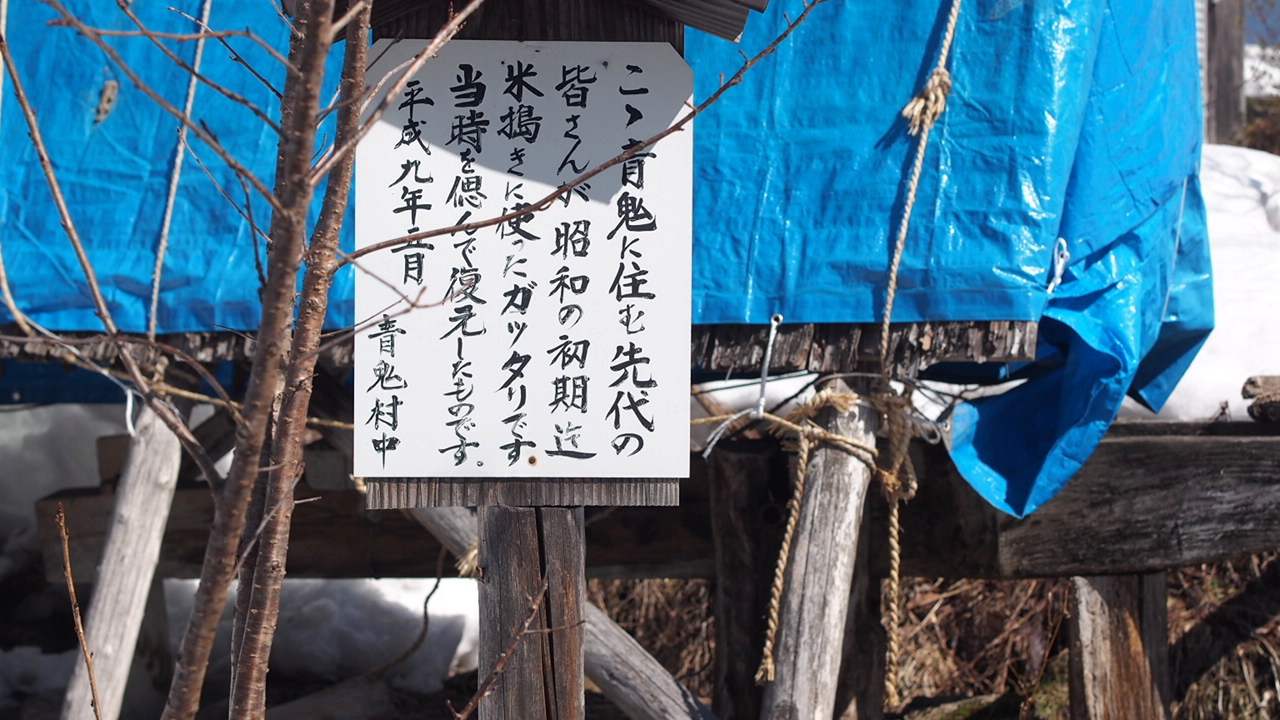 こゝ青鬼に住む先代の
皆さんが昭和の初期迄
米搗きに使ったガッタリです
当時を偲んで復元したものです。
平成九年三月 青鬼村中